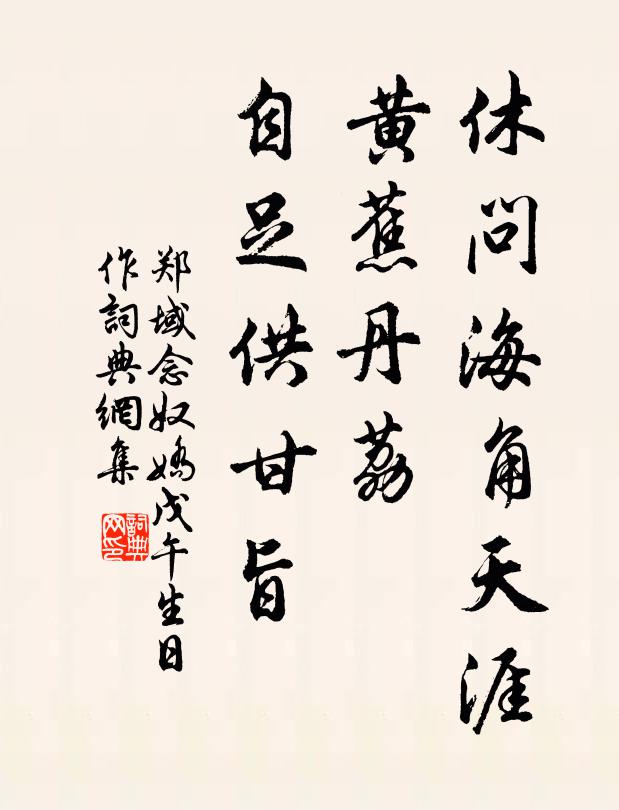 休问海角天涯
黄蕉丹荔
自足供甘旨
郑域念奴娇戊午生日
作詞典網集
詞典网印